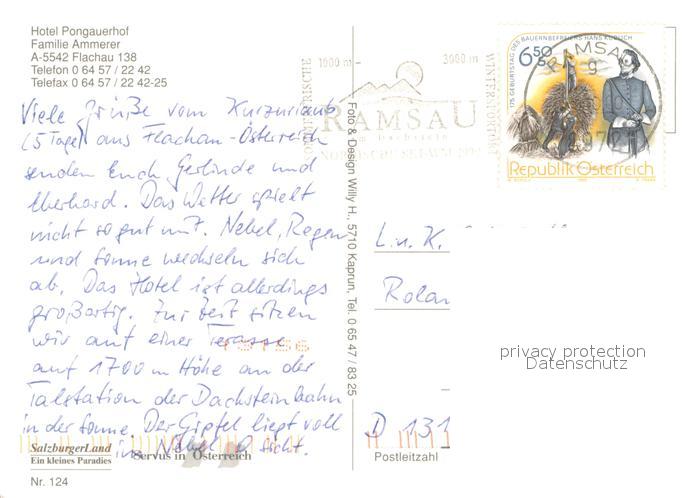 Hotel Pongauerhof
Familie Ammerer
A-5542 Flachau 138
Telefon 0 64 57 / 22 42
Telefax 0 64 57 / 22 42-25
Viele Grüße vom Kurzurlaub
(5 Tage) aus Flachau-Österreich
senden Euch Gerlinde und
Eberhard. Das Wetter spielt
nicht so gut mit. Nebel, Regen
und Sonne wechseln sich
ab. Das Hotel ist allerdings
großartig. Zur Zeit sitzen
wir auf einer Terasse
auf 1700 m Höhe an der
Talstation der Dachsteinbahn
in der Sonne. Der Gipfel liegt voll
im Nebel sicht.
SalzburgerLand
Ein kleines Paradies
Servus in Österreich
Nr. 124
Foto & Design Willy H., 5710 Kaprun, Tel. 0 65 47 / 83 25
1000 m - 3000 m
WINTERSPORT
RAMSAU
am Dachstein
175. GEBURTSTAG DES BAUERNBEFREIERS HANS KUDLICH
6,50
RAMSAU
Republik Österreich
L. u. K.
Rolan
D 131
Postleitzahl
privacy protection
Datenschutz